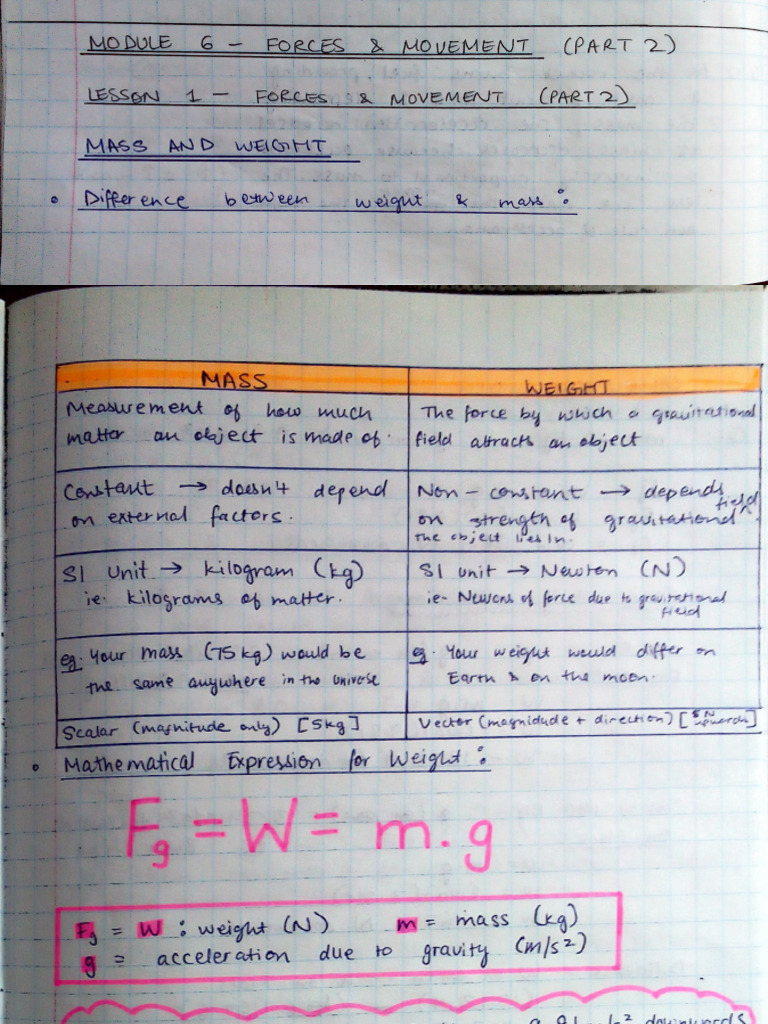 MODULE 6 - FORCES & MOVEMENT (PART 2)
LESSON 1 - FORCES & MOVEMENT (PART 2)
MASS AND WEIGHT
• Difference between weight & mass :
MASS
WEIGHT
Measurement of how much
matter an object is made of.
The force by which a gravitational
field attracts an object
Constant → doesn't depend
on external factors.
Non - constant → depends
on strength of gravitational field
the object lies in.
SI Unit → kilogram (kg)
ie. kilograms of matter.
SI unit → Newton (N)
ie- Newtons of force due to gravitational
field
eg. Your mass (75 kg) would be
the same anywhere in the universe
eg. Your weight would differ on
Earth & on the moon.
Scalar (magnitude only) [5kg]
Vector (magnidude + direction) [5N
upwards]
• Mathematical Expression for Weight :
Fg = W = m.g
Fg = W : weight (N) m = mass (kg)
g = acceleration due to gravity (m/s²)
downwards